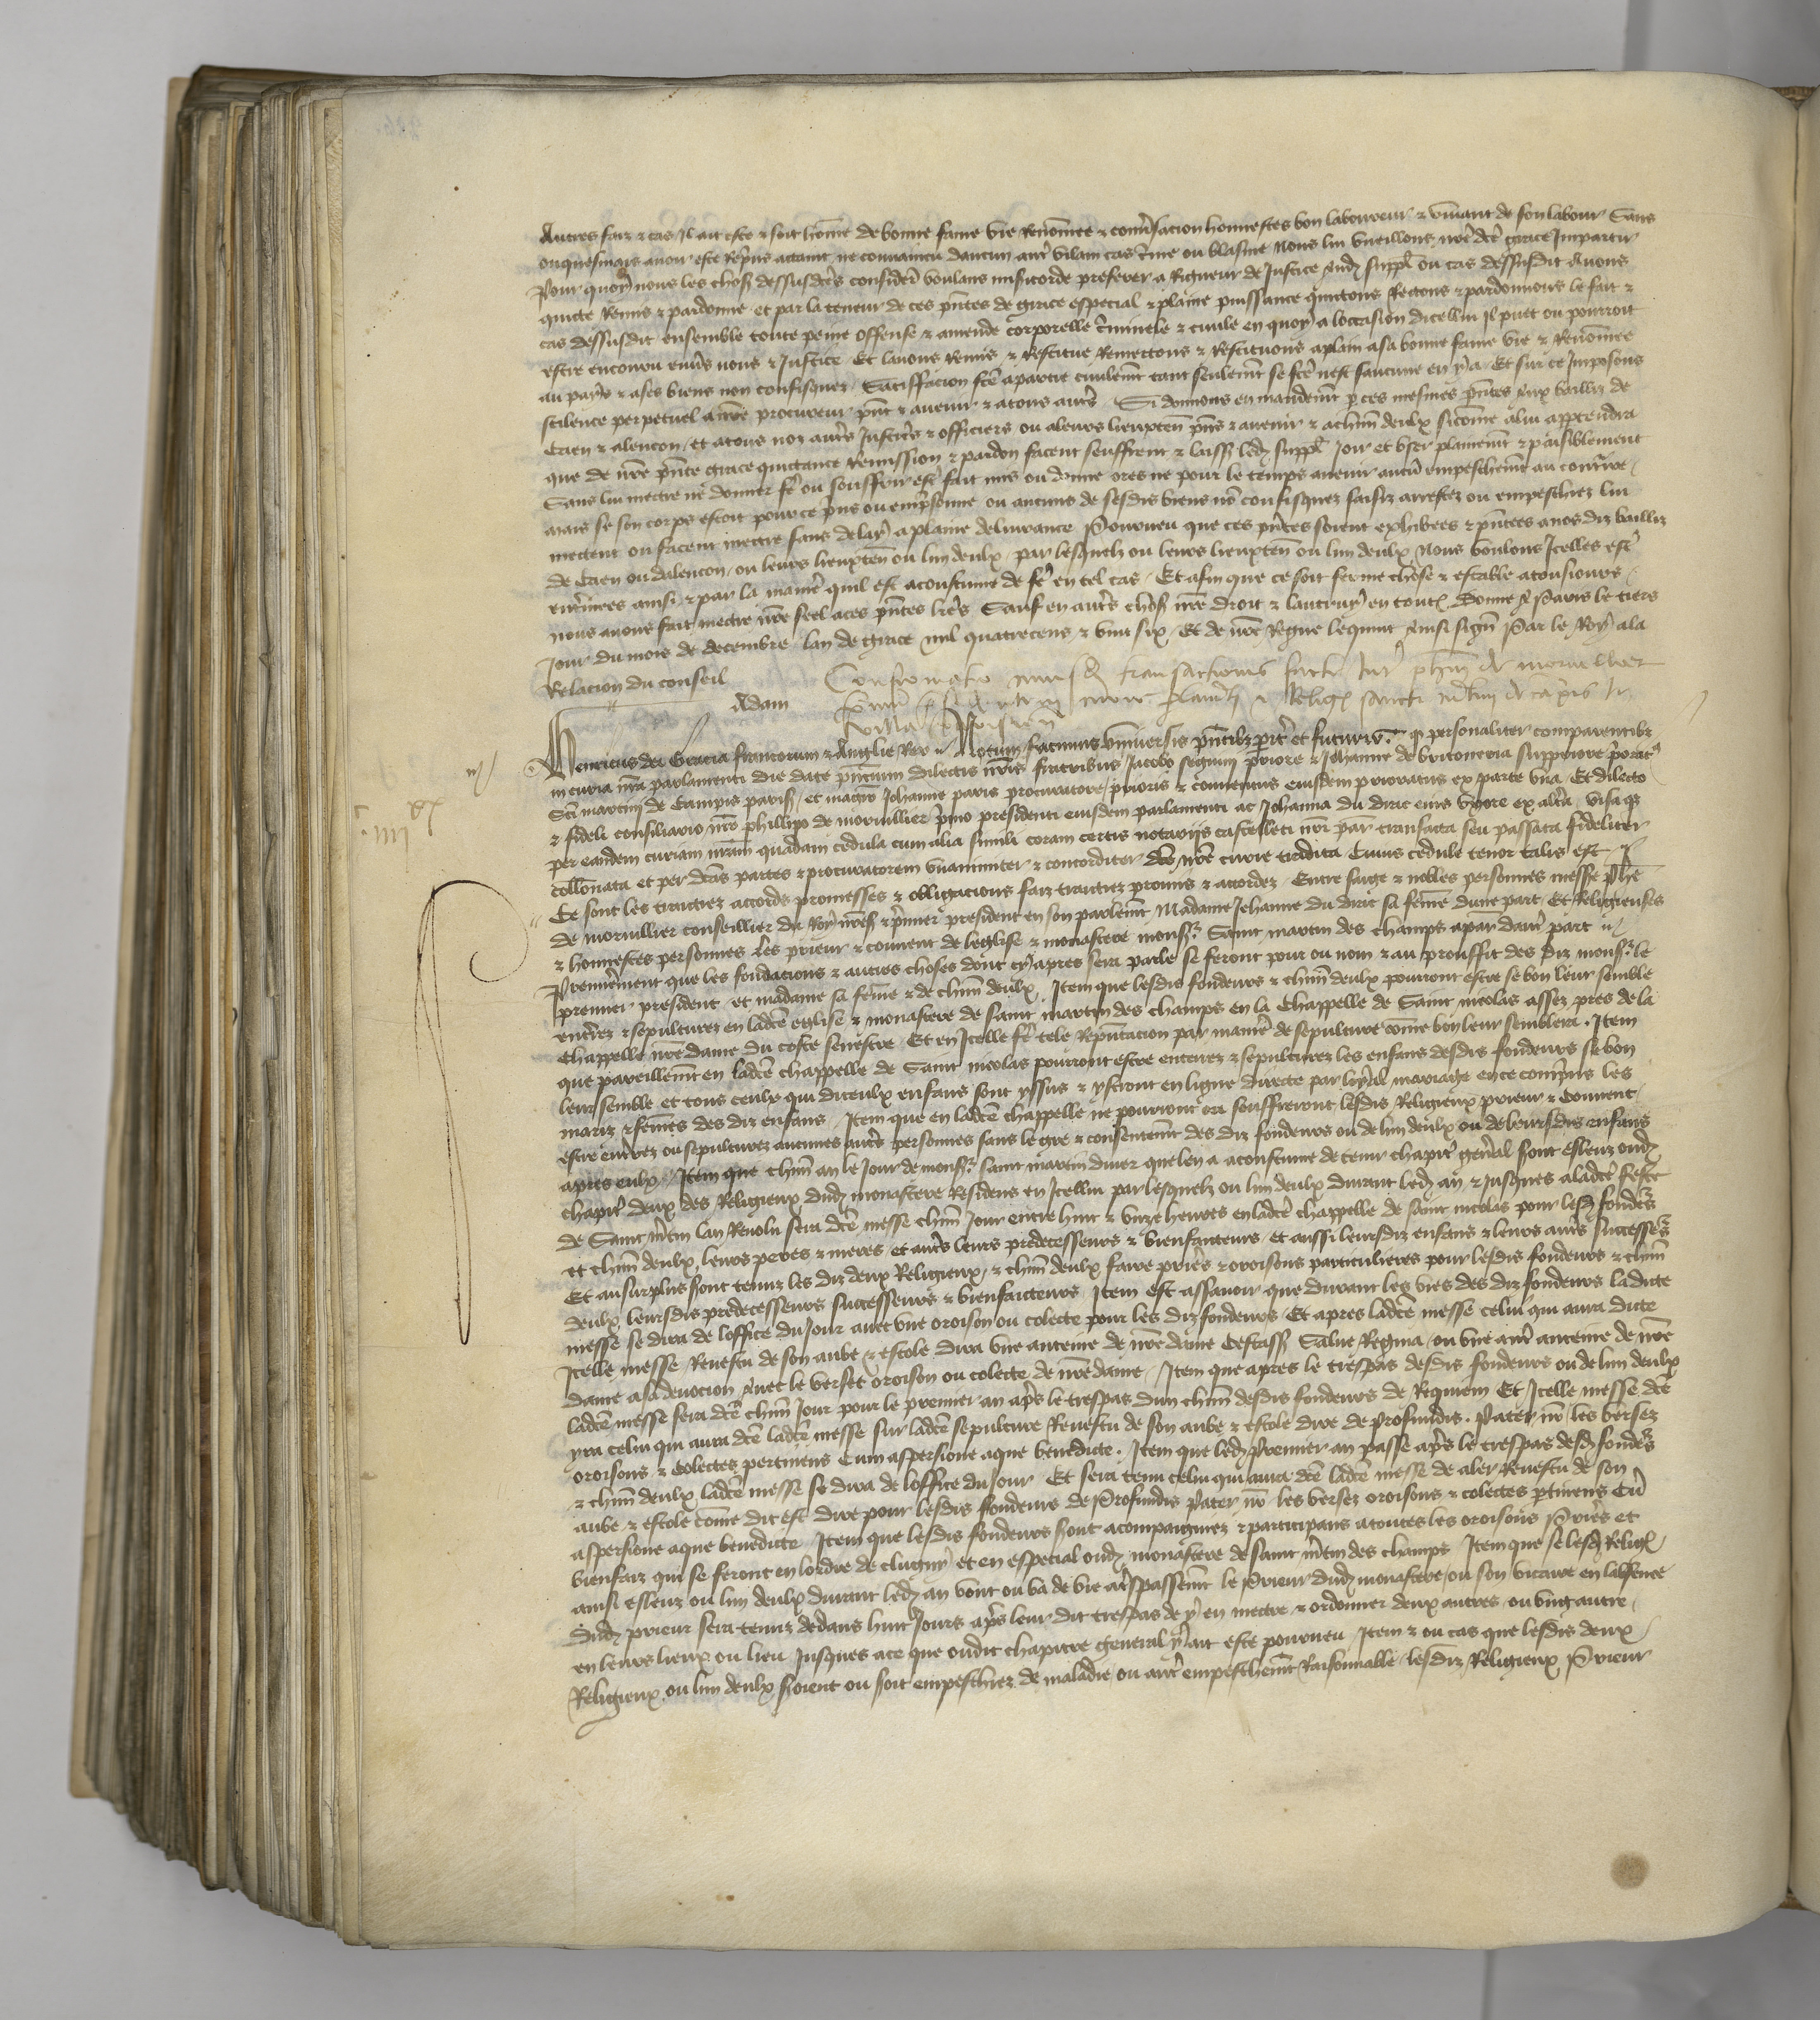 Autres faiz & cas Il ait esté & soit home de bonne fame vie Renomee & convsacion honnestes bon laboureur & vivant de son labour Sans
onquesmais avoir esté Reprins attaint ne convaincu daucun autre vilain cas crime ou blasme Nous lui vueillons nre dce grace Impartir
Pour quoy nous les choses dessusdces considerees voulans misericorde preferer a Rigueur de Justice Audz suppl ou cas dessusdit Avons
quicté Remis & pardonné et par la teneur de ces pntes de grace especial & plaine puissance quictons Remectons & pardonnons le fait &
cas dessusdit ensemble toute peine offense & amende corporelle criminele & civile en quoy a loccasion dicellui Il puet ou pourroit
estre encouru envers nous & Justice Et lavons Remis & Restitué Remectons & Restituons a plain a sa bonne fame vie & Renomee
au pais & a ses biens non confisquez Satisfacion fcte a partie civilemt tant seulemt se fcte nest saucune en y a Et sur ce Imposons
scilence perpetuel a nre procureur pnt & avenir & a tous autres Si donnons en mandemt p ces mesmes pntes aux bailliz de
Caen & alencon et a tous noz autres Justiciers & officiers ou a leurs lieuxten pns & avenir & a chun deulx sicome a lui appartendra
que de nre pnte grace quictance Remission & pardon facent seuffrent & laissent ledz suppl Joir et user plainemt & paisiblement
Sans lui mectre ne donner fe ou souffrir estre fait mis ou donné ores ne pour le temps avenir aucun empeschemt au contraire
mais se son corps estoit pource pris ou emprisonné ou aucuns de sesdis biens non confisquez saisiz arrestez ou empeschez lui
mectent ou facent mectre sans delay a plaine delivrance Pourveu que ces pntes soient exhibees & pntees a nos diz bailliz
de Caen ou dalencon ou leurs lieuxten ou lun deulx par lesquelz ou leurs lieuxten ou lun deulx Nous voulons Icelles estre
enterinees ainsi & par la maniere quil est acoustumé de fe en tel cas Et afin que ce soit ferme chose & estable a tousiours
nous avons fait mectre nre seel a ces pntes lres Sauf en autres choses nre droit & lautruy en toutes Donne a Paris le tiers
Jour du mois de decembre lan de grace mil quatrecens & vint six Et de nre Regne le quint Ainsi signé Par le Roy a la
Relacion du conseil
Adam
Henricus dei Gracia francorum & Anglie Rex Notum facimus Universis pntibz pariter et futuris q personaliter comparentibz
in curia nra parlamenti die date pntium dilectis nris fratribus Jacobo seguini priore & Johanne de britoneria suppriore prioratus
Sci martini de Campis parisz et magro Johanne paris procuratore prioris & conventus eiusdem prioratus ex parte una Et dilecto
& fideli consiliario nro phillippo de morvillier primo presidenti eiusdem parlamenti ac Johanna du drac eius uxore ex altera visa qz
per eandem curiam nram quadam cedula cum alia simili coram certis notariis castelleti nri par transacta seu passata fideliter
collonata et per dcas partes & procuratorem unanimiter & concorditer dce nre curie tradita Cuius cedule tenor talis est
Ce sont les traictiez accords promesses & obligacions faiz traictiez promis & accordez Entre saige & nobles personnes messe Phe
de morvillier conseillier du Roy nresz & pmier president en son parlemt Madame Jehanne du drac sa feme dune part Et Religieuses
& honnestes personnes les prieur & convent de leglise & monastere monsr Saint martin des champs a par dautre part
Premierement que les fondacions & autres choses dont cy apres sera parlé se feront pour ou nom & au prouffit des diz monsr le
premier president et madame sa feme & de chun deulx Item que lesdis fondeurs & chun deulx pourront estre se bon leur semble
enterrez & sepulturez en ladce eglise & monastere de saint martin des champs en la Chappelle de Saint nicolas assez pres de la
Chappelle nre dame du costé senestre Et en Icelle fe tele Repntacion par maniere de sepulture come bon leur semblera Item
que pareillemt en ladce chappelle de Saint nicolas pourront estre enterrez & sepulturez les enfans desdis fondeurs se bon
leur semble et tous ceulx qui diceulx enfans sont yssus & ystront en ligne directe par loyal mariage en ce compris les
mariz & femes des diz enfans Item que en ladce chappelle ne pourront ou souffreront lesdis Religieux prieur & Couvent
estre enterrez ou sepulturez aucunes autres personnes sans le gre & consentemt des diz fondeurs ou de lun deulx ou de leursdis enfans
apres eulx Item que chun an le Jour de monsr saint martin diver que len a acoustumé de tenir chapitre general sont esleuz oudz
chapitre deux des Religieux dudz monastere Residens en Icellui par lesquelz ou lun deulx durant ledz an & jusques a ladce feste
de Saint mtin lan Revolu sera dce messe chun Jour entre huit & unze heures en ladce chappelle de saint nicolas pour lesdz fondeurs
et chun deulx leurs peres & meres et autres leurs predecesseurs & bienfaiteurs et aussi leursdiz enfans & leurs autres successeurs
Et au surplus sont tenuz les diz deux Religieux & chun deulx faire prieres & oroisons particulieres pour lesdis fondeurs & chun
deulx leursdis predecesseurs successeurs & bienfaicteurs Item est assavoir que durant les vies des diz fondeurs ladicte
messe se dira de loffice du Jour avec une oroison ou colecte pour les diz fondeurs Et apres ladce messe celui qui aura dicte
Icelle messe Revestu de son aube & estole dira une anteine de nre dame Cestass Salve Regina ou une autre anteine de nre
dame a sa devocion Avec le verset oroison ou colecte de nre dame Item que apres le trespas desdis fondeurs ou de lun deulx
ladce messe sera dce chun Jour pour le premier an apres le trespas dun chun desdis fondeurs de Requiem Et Icelle messe dce
yra celui qui aura dce ladce messe sur ladce sepulture Revestu de son aube & estole dire de Profundis Pater nr les versez
oroisons & Colectes pertinens Cum aspersione aque benedicte Item que ledz Premier an passé apres le trespas desdz fondeurs
& chun deulx ladce messe se dira de loffice du Jour Et sera tenu celui qui aura dce ladce messe de aler Revestu de son
aube & estole come dit est dire pour lesdis fondeurs de Profundis Pater nr les versez oroisons & colectes ptinens Cu
aspersione aque benedicte Item que lesdis fondeurs sont acompaigniez & participans a toutes les oroisons Prieres et
bienfaiz qui se feront en lordre de clugny et en especial oudz monastere de saint mtin des champs Item que se lesdz Religx
ainsi esleuz ou lun deulx durant ledz an vont ou va de vie a trespassemt le Prieur dudz monastere ou son vicaire en labsence
dudz prieur sera tenuz dedans huit Jours apres leur dit trespas de y en mectre & ordonner deux autres ou ung autre
en leurs lieux ou lieu Jusques a ce que oudit chapitre general y ait esté pourveu Item & ou cas que lesdis deux
Religieux ou lun deulx soient ou soit empeschiez de maladie ou autre empeschemt Raisonnable lesdiz Religieux Prieur